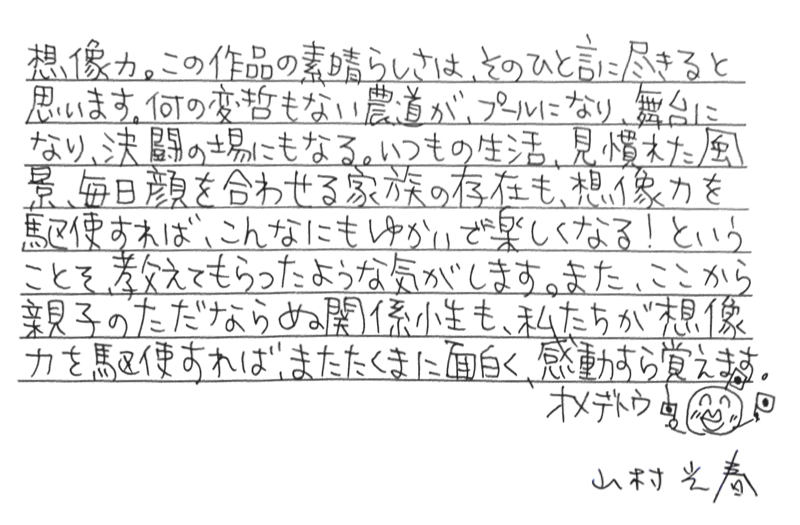 想像力。この作品の素晴らしさは、そのひと言に尽きると
思います。何の変哲もない農道が、プールになり、舞台に
なり、決闘の場にもなる。いつもの生活、見慣れた風
景、毎日顔を合わせる家族の存在も、想像力を
駆使すれば、こんなにもゆかいで楽しくなる！という
ことを、教えてもらったような気がします。また、ここから
親子のただならぬ関係小生も、私たちが想像
力を駆使すれば、またたくまに面白く、感動すら覚えます。
オメデトウ
山村光春